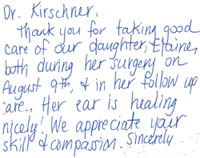 Dr. Kirschner,
Thank you for taking good
care of our daughter, Elaine,
both during her surgery on
August 9th, & in her follow up
are. Her ear is healing
nicely! We appreciate your
skill & compassion. Sincerely